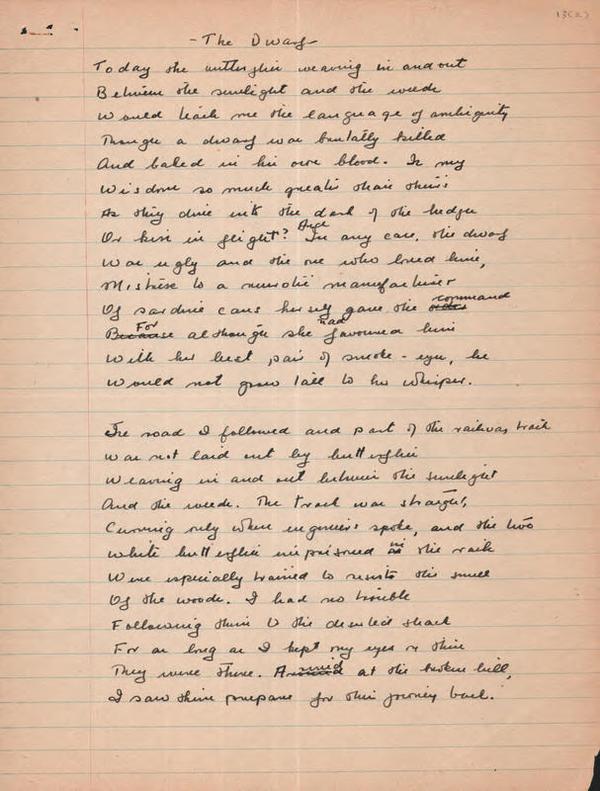 13(2)
- The Dwarf -
Today the butterflies weaving in and out
Between the sunlight and the weeds
Would teach me the language of ambiguity
Though a dwarf was brutally killed
And baked in his own blood. Is my
Wisdom so much greater than theirs
As they dive into the dark of the hedge
Or kiss in flight? And In any case, the dwarf
Was ugly and the one who loved him,
Mistress to a neurotic manufacturer
Of sardine cans herself gave the order command
Because For although she had favoured him
With her best pair of smoke-eyes, he
Would not grow tall to her whisper.
The road I followed and part of the railway track
Was not laid out by butterflies
Weaving in and out between the sunlight
And the weeds. The track was straight,
Curving only when engineers spoke, and the two
White butterflies imprisoned in the rails
Were especially trained to resist the smell
Of the woods. I had no trouble
Following them to the deserted shack
For as long as I kept my eyes on them
They were there. at the broken hill,
I saw them prepare for their journey back.